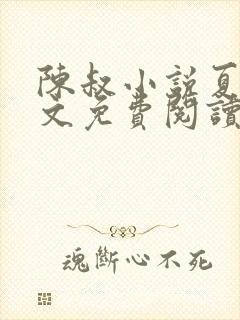 陳叔小說夏
文免費閱讀
魂斷心不死